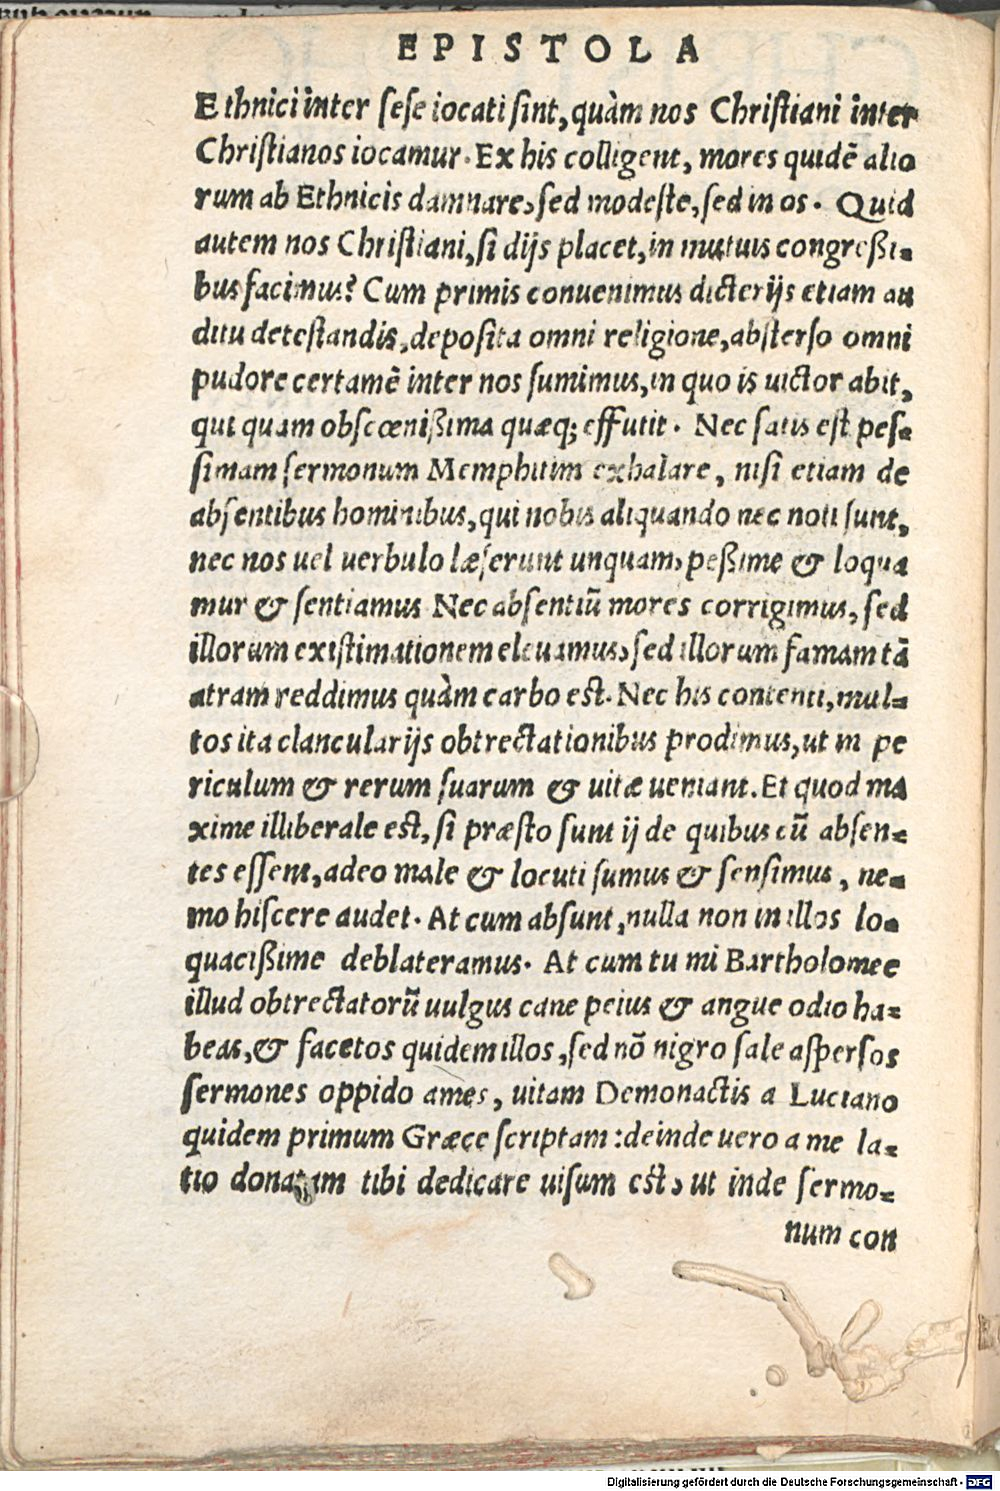 EPISTOLA
Ethnici inter sese iocati sint, quàm nos Christiani inter
Christianos iocamur. Ex his colligent, mores quidẽ alio
rum ab Ethnicis damnare, sed modeste, sed in os. Quid
autem nos Christiani, si dijs placet, in mutuis congreßi-
bus facimus? Cum primis conuenimus dicterijs etiam au
ditu detestandis, deposita omni religione, absterso omni
pudore certamẽ inter nos sumimus, in quo is uictor abit,
qui quam obscœnißima quæq; effutit. Nec satis est pes-
simam sermonum Memphitim exhalare, nisi etiam de
absentibus hominibus, qui nobis aliquando nec noti sunt,
nec nos uel uerbulo læserunt unquam, peßime & loqua
mur & sentiamus Nec absentiũ mores corrigimus, sed
illorum existimationem eleuamus, sed illorum famam tã
atram reddimus quàm carbo est. Nec his contenti, mul-
tos ita clancularijs obtrectationibus prodimus, ut in pe
riculum & rerum suarum & uitæ ueniant. Et quod ma
xime illiberale est, si præsto sunt ij de quibus cũ absen-
tes essent, adeo male & locuti sumus & sensimus, ne-
mo hiscere audet. At cum absunt, nulla non in illos lo-
quacißime deblateramus. At cum tu mi Bartholomee
illud obtrectatorũ uulgus cane peius & angue odio ha-
beas, & facetos quidem illos, sed nõ nigro sale aspersos
sermones oppido ames, uitam Demonactis a Luciano
quidem primum Græce scriptam: deinde uero a me la-
tio donatam tibi dedicare uisum est, ut inde sermo-
num con
Digitalisierung gefördert durch die Deutsche Forschungsgemeinschaft - DFG